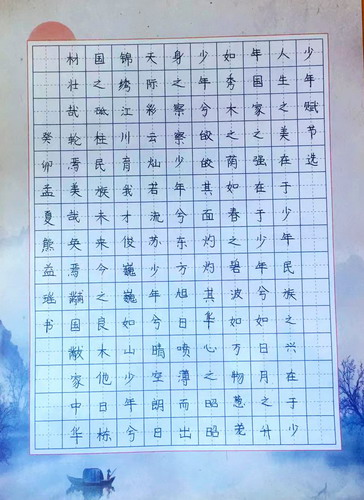 少年赋节选
人生之美在于少年民族之兴在于少
年国家之强在于少年兮如日月之升
如秀木之荫如春之碧波如万物葱茏
少年兮皎皎其面灼灼其华心之昭昭
身之察察少年兮东方旭日喷薄而出
天际彩云灿若流苏少年兮晴空朗日
锦绣江川育我才俊巍巍如山少年兮
国之砥柱民族未来今之良木他日栋
材壮哉轮焉美哉奂焉黼国黻家中华
癸卯孟夏熊益瑶书